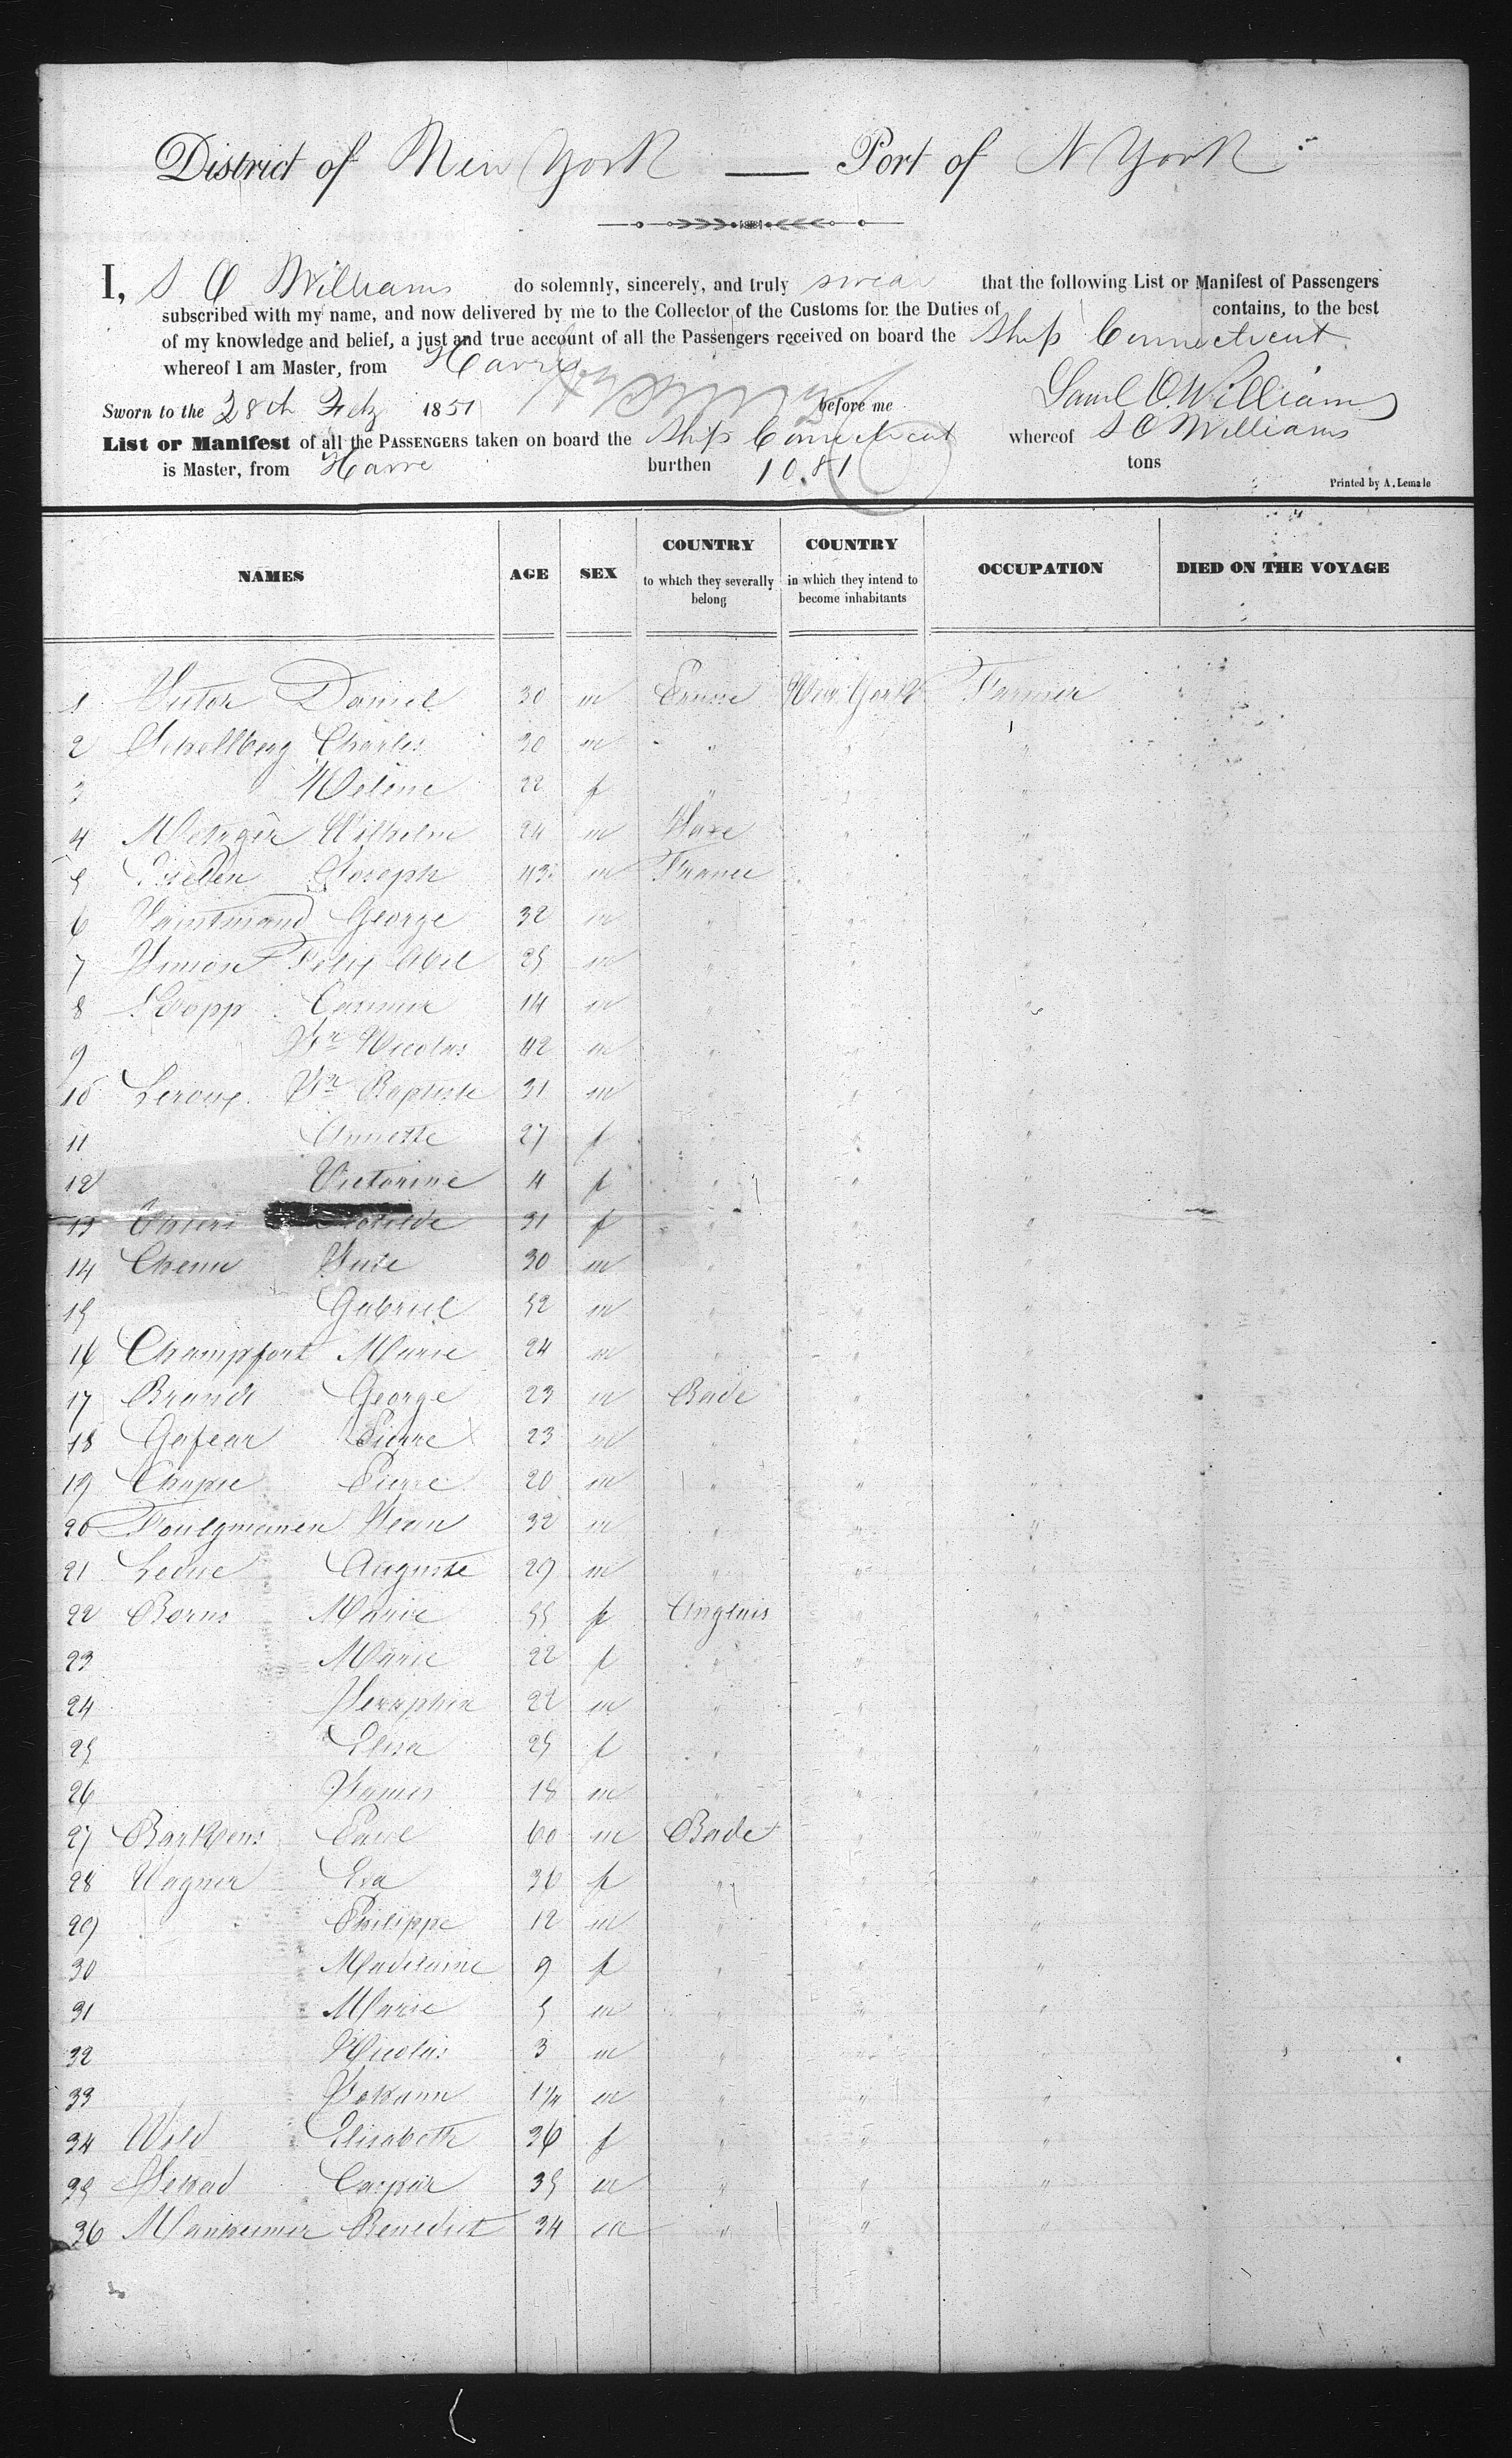 District of New York — Port of N York
I, S O Williams do solemnly, sincerely, and truly swear that the following List or Manifest of Passengers
subscribed with my name, and now delivered by me to the Collector of the Customs for the Duties of contains, to the best
of my knowledge and belief, a just and true account of all the Passengers received on board the Ship Connecticut
whereof I am Master, from Havre
Sworn to the 28th Feby 1851 before me Saml O. Williams
List or Manifest of all the PASSENGERS taken on board the Ship Connecticut whereof S O Williams
is Master, from Havre burthen 10.81 tons
Printed by A. Lemale
NAMES AGE SEX COUNTRY to which they severally belong COUNTRY in which they intend to become inhabitants OCCUPATION DIED ON THE VOYAGE
1 Victor Daniel 30 m Prusse New York Farmer
2 Schellberg Charles 30 m " " "
3 Helene 22 f " " "
4 Metzger Wilhelm 24 m " "
5 Joseph 43 m France " "
6 George 32 m " " "
7 Simon Felix Abel 25 m " " "
8 Casimir 14 m " "
9 Jn Nicolas 42 m " " "
10 Leroux Jn Baptiste 31 m " " "
11 Annette 27 f " " "
12 Victorine 4 f " " "
13 31 f " " "
14 Chenu 30 m " " "
15 Gabriel 52 m " " "
16 Champfort Marie 24 m " " "
17 Brandt George 23 m Bade " "
18 Pierre 23 m " " "
19 Pierre 20 m " " "
20 Jean 32 m " " "
21 Leduc Auguste 29 m " " "
22 Borns Marie 55 f Anglais " "
23 Marie 22 f " " "
24 Seraphin 22 m " " "
25 Elisa 25 f " " "
26 James 18 m " " "
27 Barkhens 60 m Bade " "
28 Wagner Eva 36 f " " "
29 Philippe 12 m " " "
30 Madelaine 9 f " " "
31 Marie 5 m " " "
32 Nicolas 3 m " " "
33 Johann m " " "
34 Wild Elisabeth 36 f " " "
35 Caspar 35 m " " "
36 Manheimer Benedict 34 m " " "